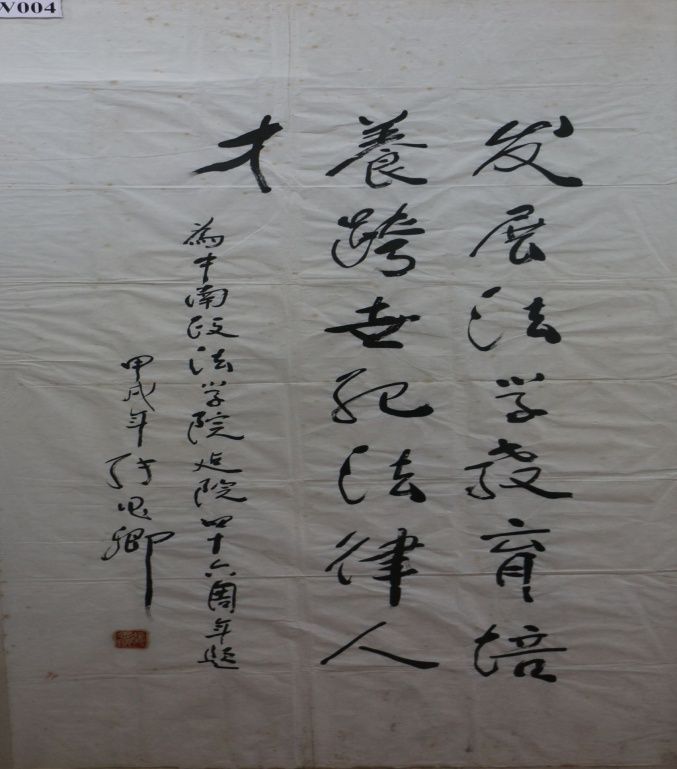 发展法学教育培
養跨世纪法律人
才
為中南政法学院建院四十六周年题
甲戌年张思卿
V004